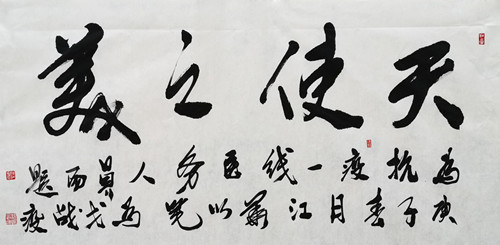 天使之美
为抗疫一线医务人员而题
庚子春月江以笔为戈战疫